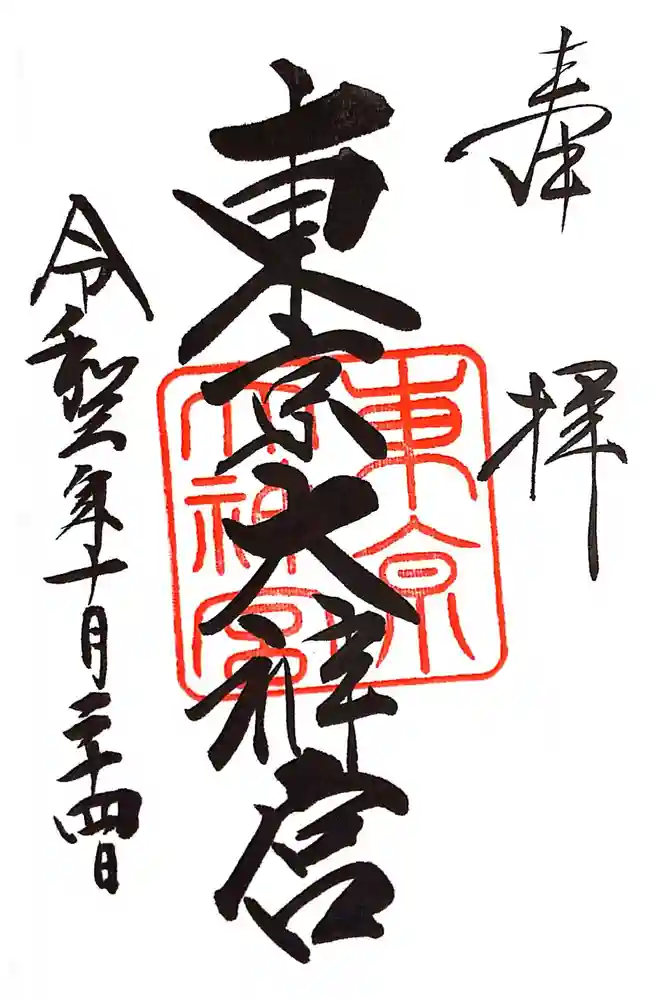 奉拝
東京大神宮
東京
大神宮
令和三年十月二十四日